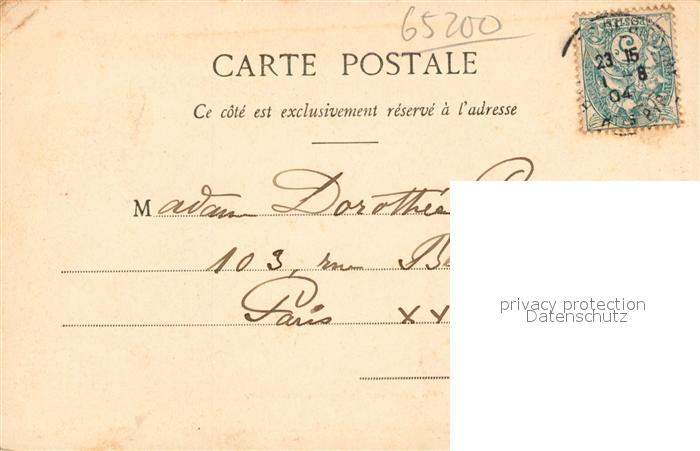 65200
CARTE POSTALE
23 15
1 - 8
04
Ce côté est exclusivement réservé à l'adresse
Madam Dorothée
103, rue B
Paris XX
privacy protection
Datenschutz